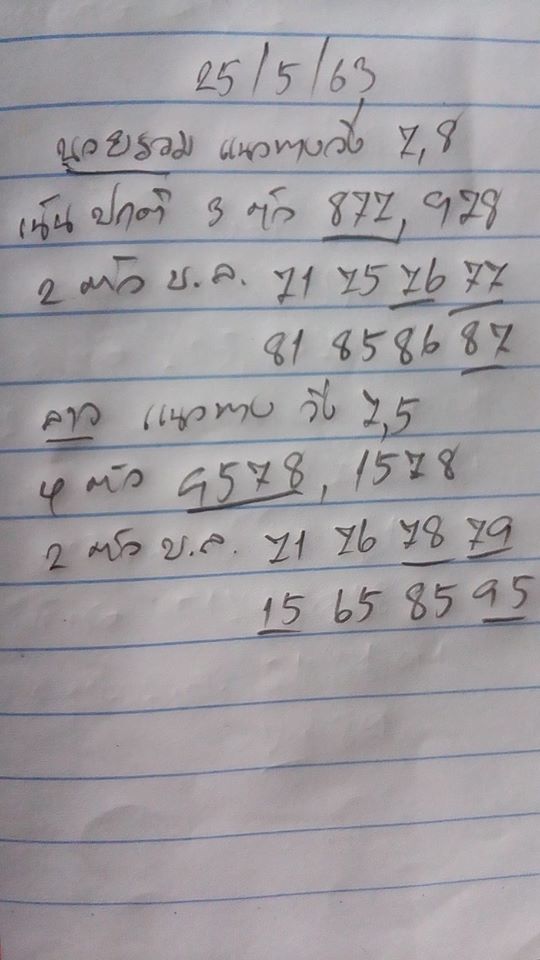 25/5/63
นอยรวม แนวทางวิ่ง 7,8
เน้น ปกติ 3 ตัว 877, 978
2 ตัว บ.ล. 71 75 76 77
81 85 86 87
ลาว แนวทาง วิ่ง 7,5
4 ตัว 9578, 1578
2 ตัว บ.ล. 71 76 78 79
15 65 85 95